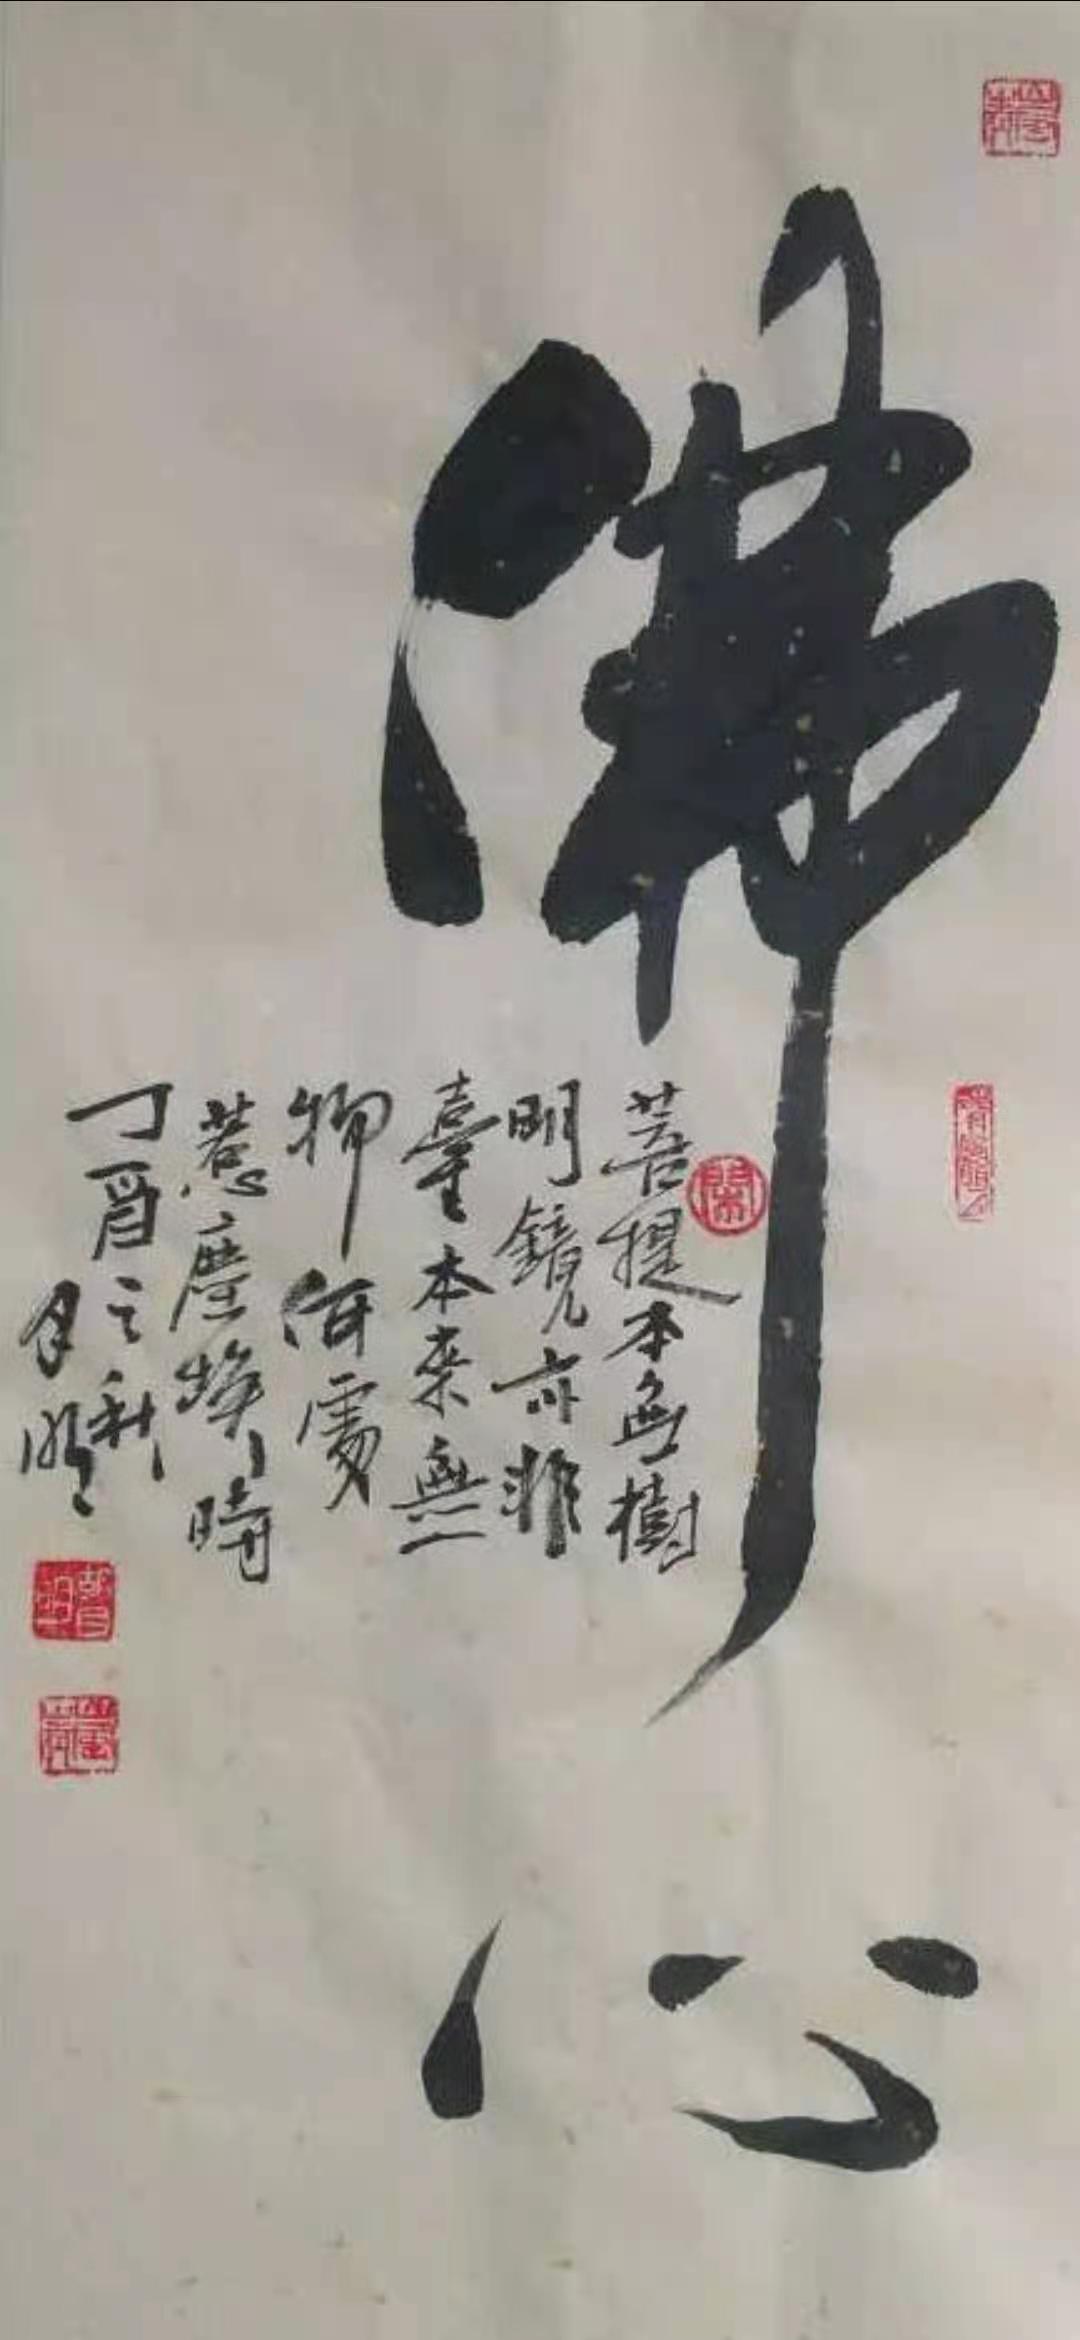 佛心
菩提本無樹
明鏡亦非
臺本来無一
物何處
惹塵埃時
丁酉之秋
月明